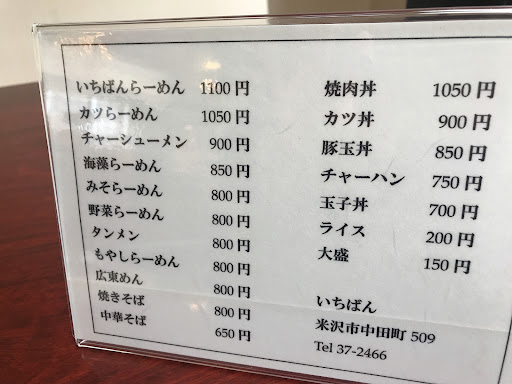 いちばんらーめん 1100 円
カツらーめん 1050 円
チャーシューメン 900 円
海藻らーめん 850 円
みそらーめん 800 円
野菜らーめん 800 円
タンメン 800 円
もやしらーめん 800 円
広東めん 800 円
焼きそば 800 円
中華そば 650 円
焼肉丼 1050 円
カツ丼 900 円
豚玉丼 850 円
チャーハン 750 円
玉子丼 700 円
ライス 200 円
大盛 150 円
いちばん
米沢市中田町 509
Tel 37-2466